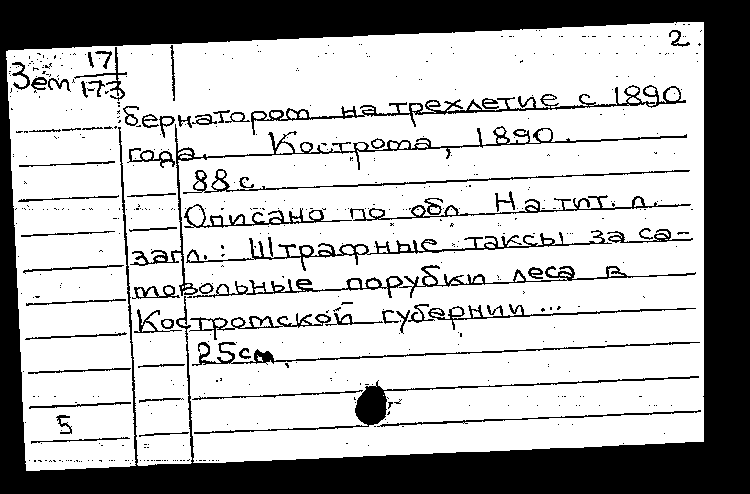 2.
Зем 17/173
бернатором на трехлетие с 1890
года. Кострома, 1890.
88 с.
Описано по обл. На тит. л.
загл.: Штрафные таксы за са-
мовольные порубки леса в
Костромской губернии ...
25см.
5